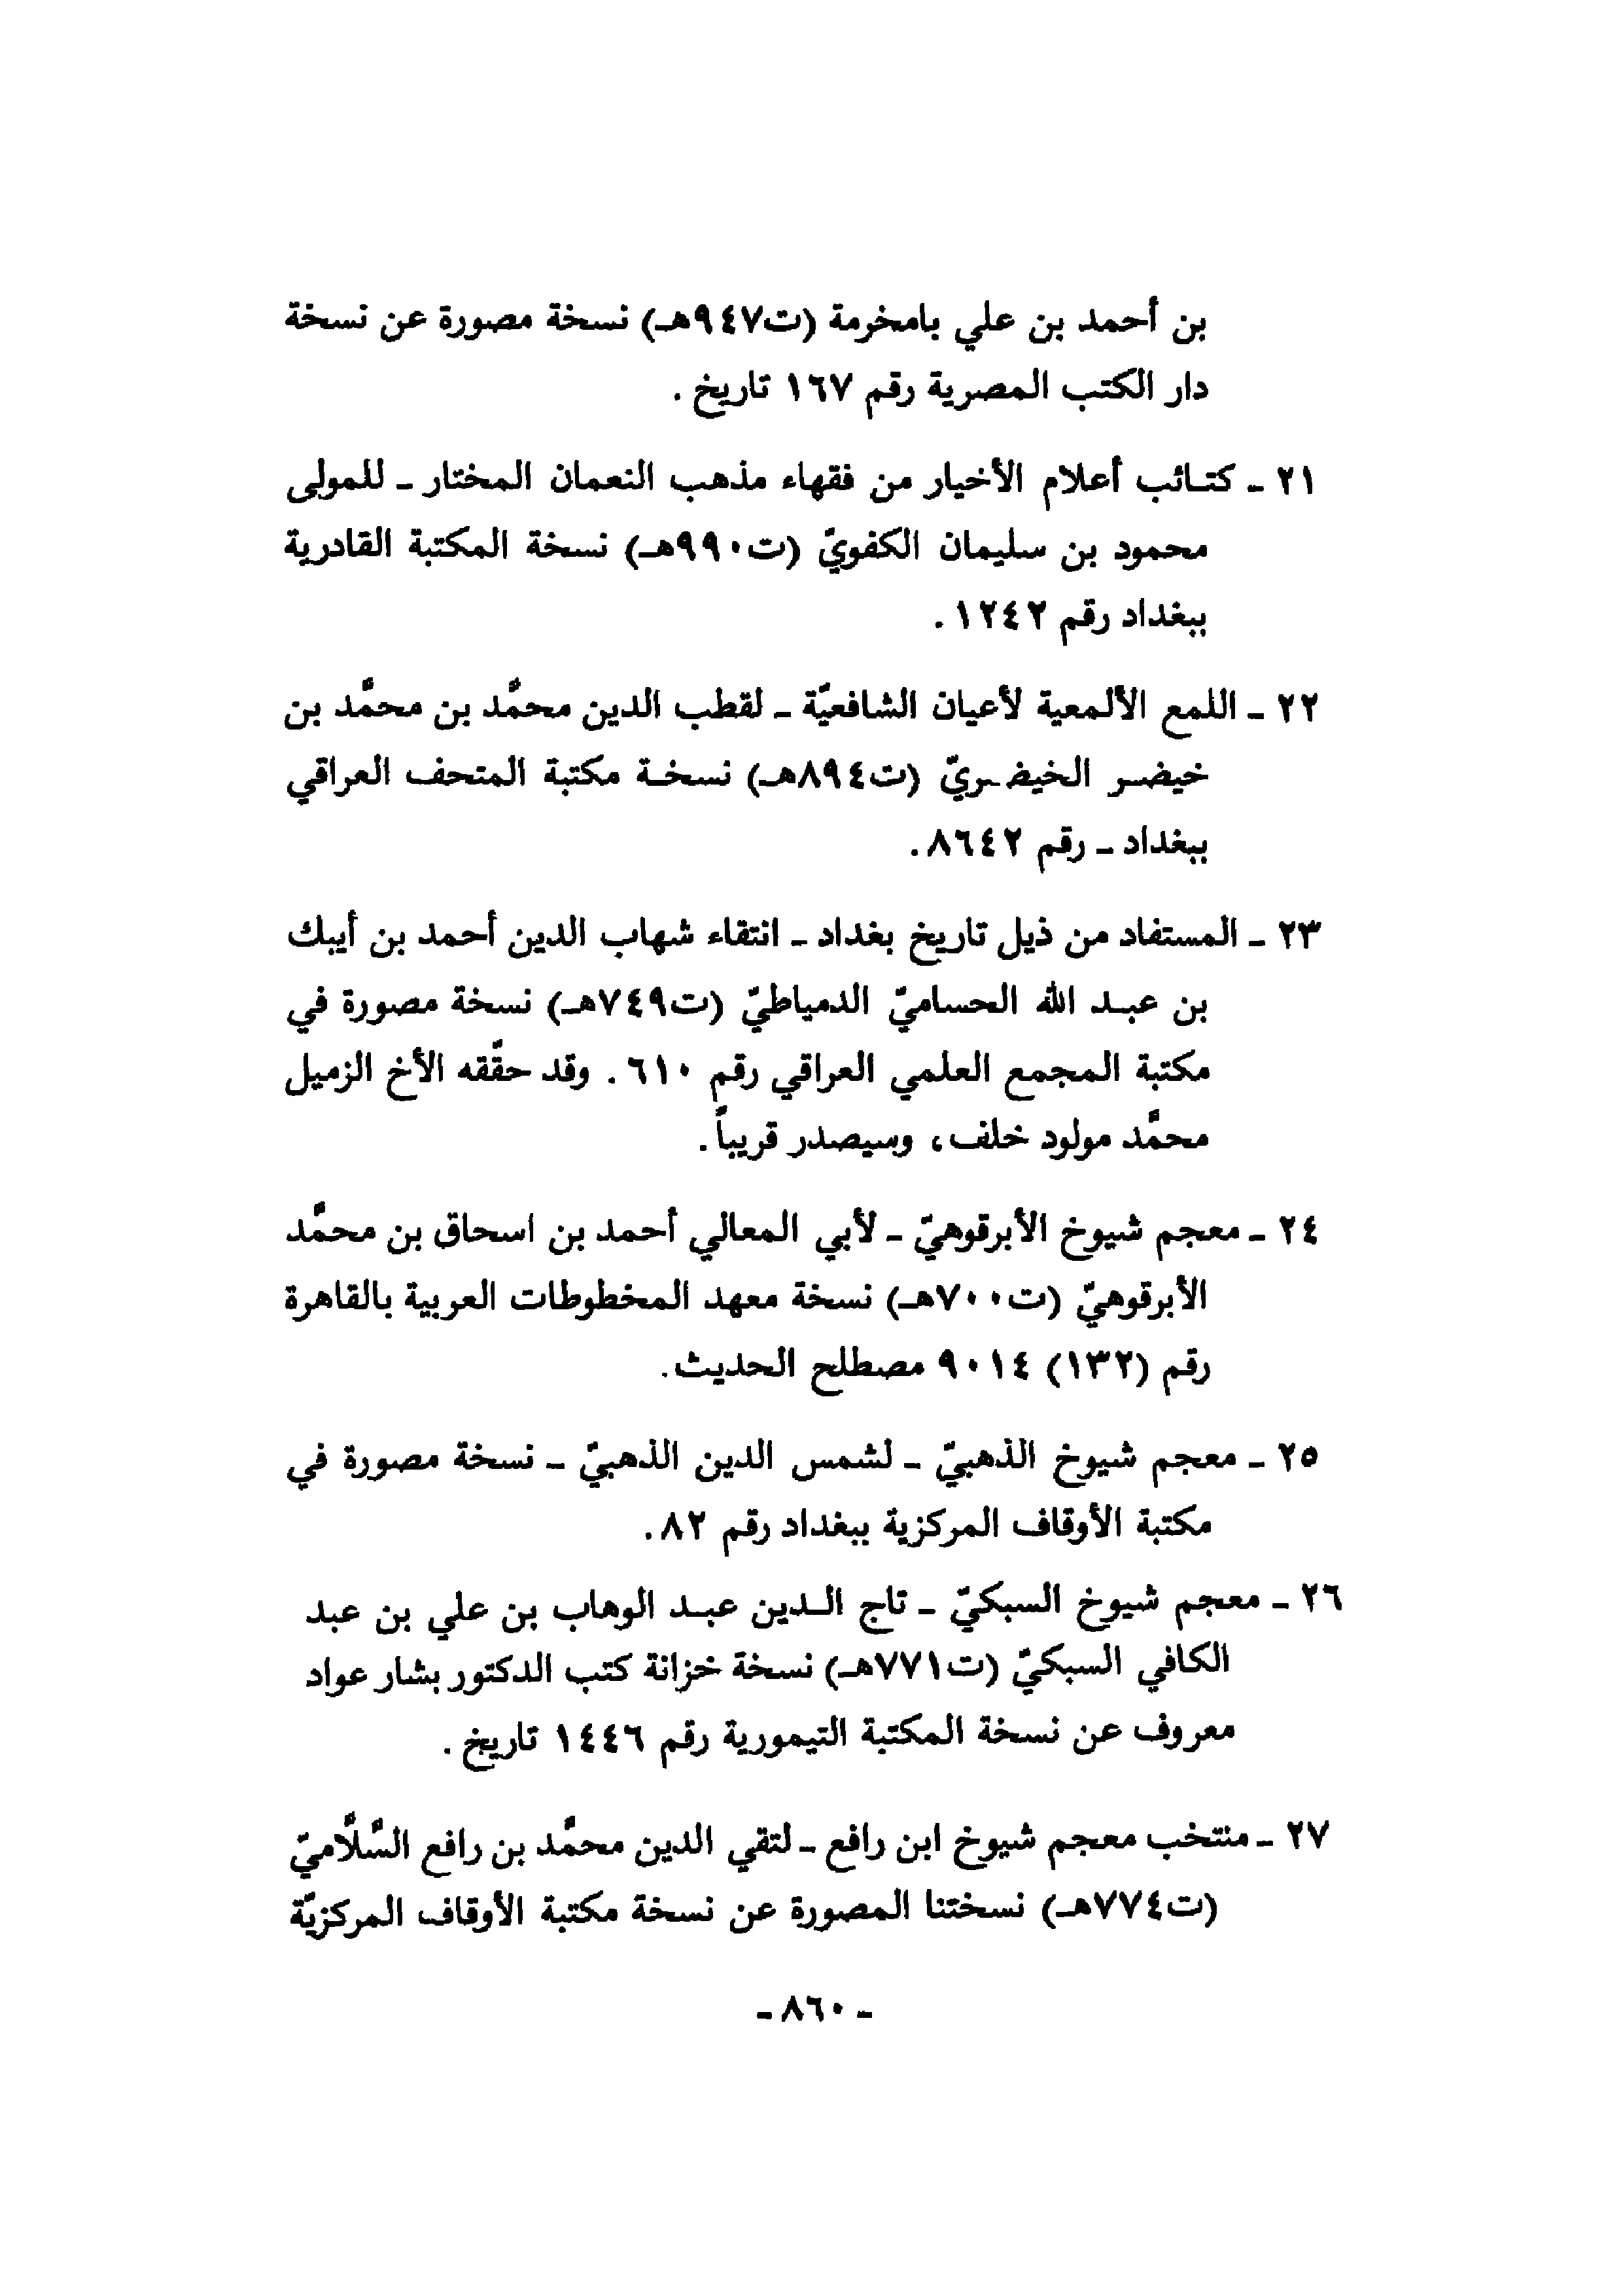 بن أحمد بن علي بامخرمة (ت٩٤٧هـ) نسخة مصورة عن نسخة
دار الكتب المصرية رقم ١٦٧ تاريخ .
٢١ - كتائب أعلام الأخيار من فقهاء مذهب النعمان المختار - للمولى
محمود بن سليمان الكفويّ (ت٩٩٠هـ) نسخة المكتبة القادرية
ببغداد رقم ١٢٤٢ .
٢٢ - اللمع الألمعية لأعيان الشافعيّة - لقطب الدين محمَّد بن محمَّد بن
خيضر الخيضريّ (ت٨٩٤هـ) نسخة مكتبة المتحف العراقي
ببغداد - رقم ٨٦٤٢ .
٢٣ - المستفاد من ذيل تاريخ بغداد - انتقاء شهاب الدين أحمد بن أيبك
بن عبد الله الحساميّ الدمياطيّ (ت٧٤٩هـ) نسخة مصورة في
مكتبة المجمع العلمي العراقي رقم ٦١٠ . وقد حقّقه الأخ الزميل
محمَّد مولود خلف، وسيصدر قريباً .
٢٤ - معجم شيوخ الأبرقوهيّ - لأبي المعالي أحمد بن اسحاق بن محمَّد
الأبرقوهيّ (ت٧٠٠هـ) نسخة معهد المخطوطات العربية بالقاهرة
رقم (١٣٢) ٩٠١٤ مصطلح الحديث .
٢٥ - معجم شيوخ الذهبيّ - لشمس الدين الذهبيّ - نسخة مصورة في
مكتبة الأوقاف المركزية ببغداد رقم ٨٢ .
٢٦ - معجم شيوخ السبكيّ - تاج الدين عبد الوهاب بن علي بن عبد
الكافي السبكيّ (ت٧٧١هـ) نسخة خزانة كتب الدكتور بشار عواد
معروف عن نسخة المكتبة التيمورية رقم ١٤٤٦ تاريخ .
٢٧ - منتخب معجم شيوخ ابن رافع - لتقي الدين محمَّد بن رافع السَّلَّاميّ
(ت٧٧٤هـ) نسختنا المصورة عن نسخة مكتبة الأوقاف المركزيّة
- ٨٦٠ -